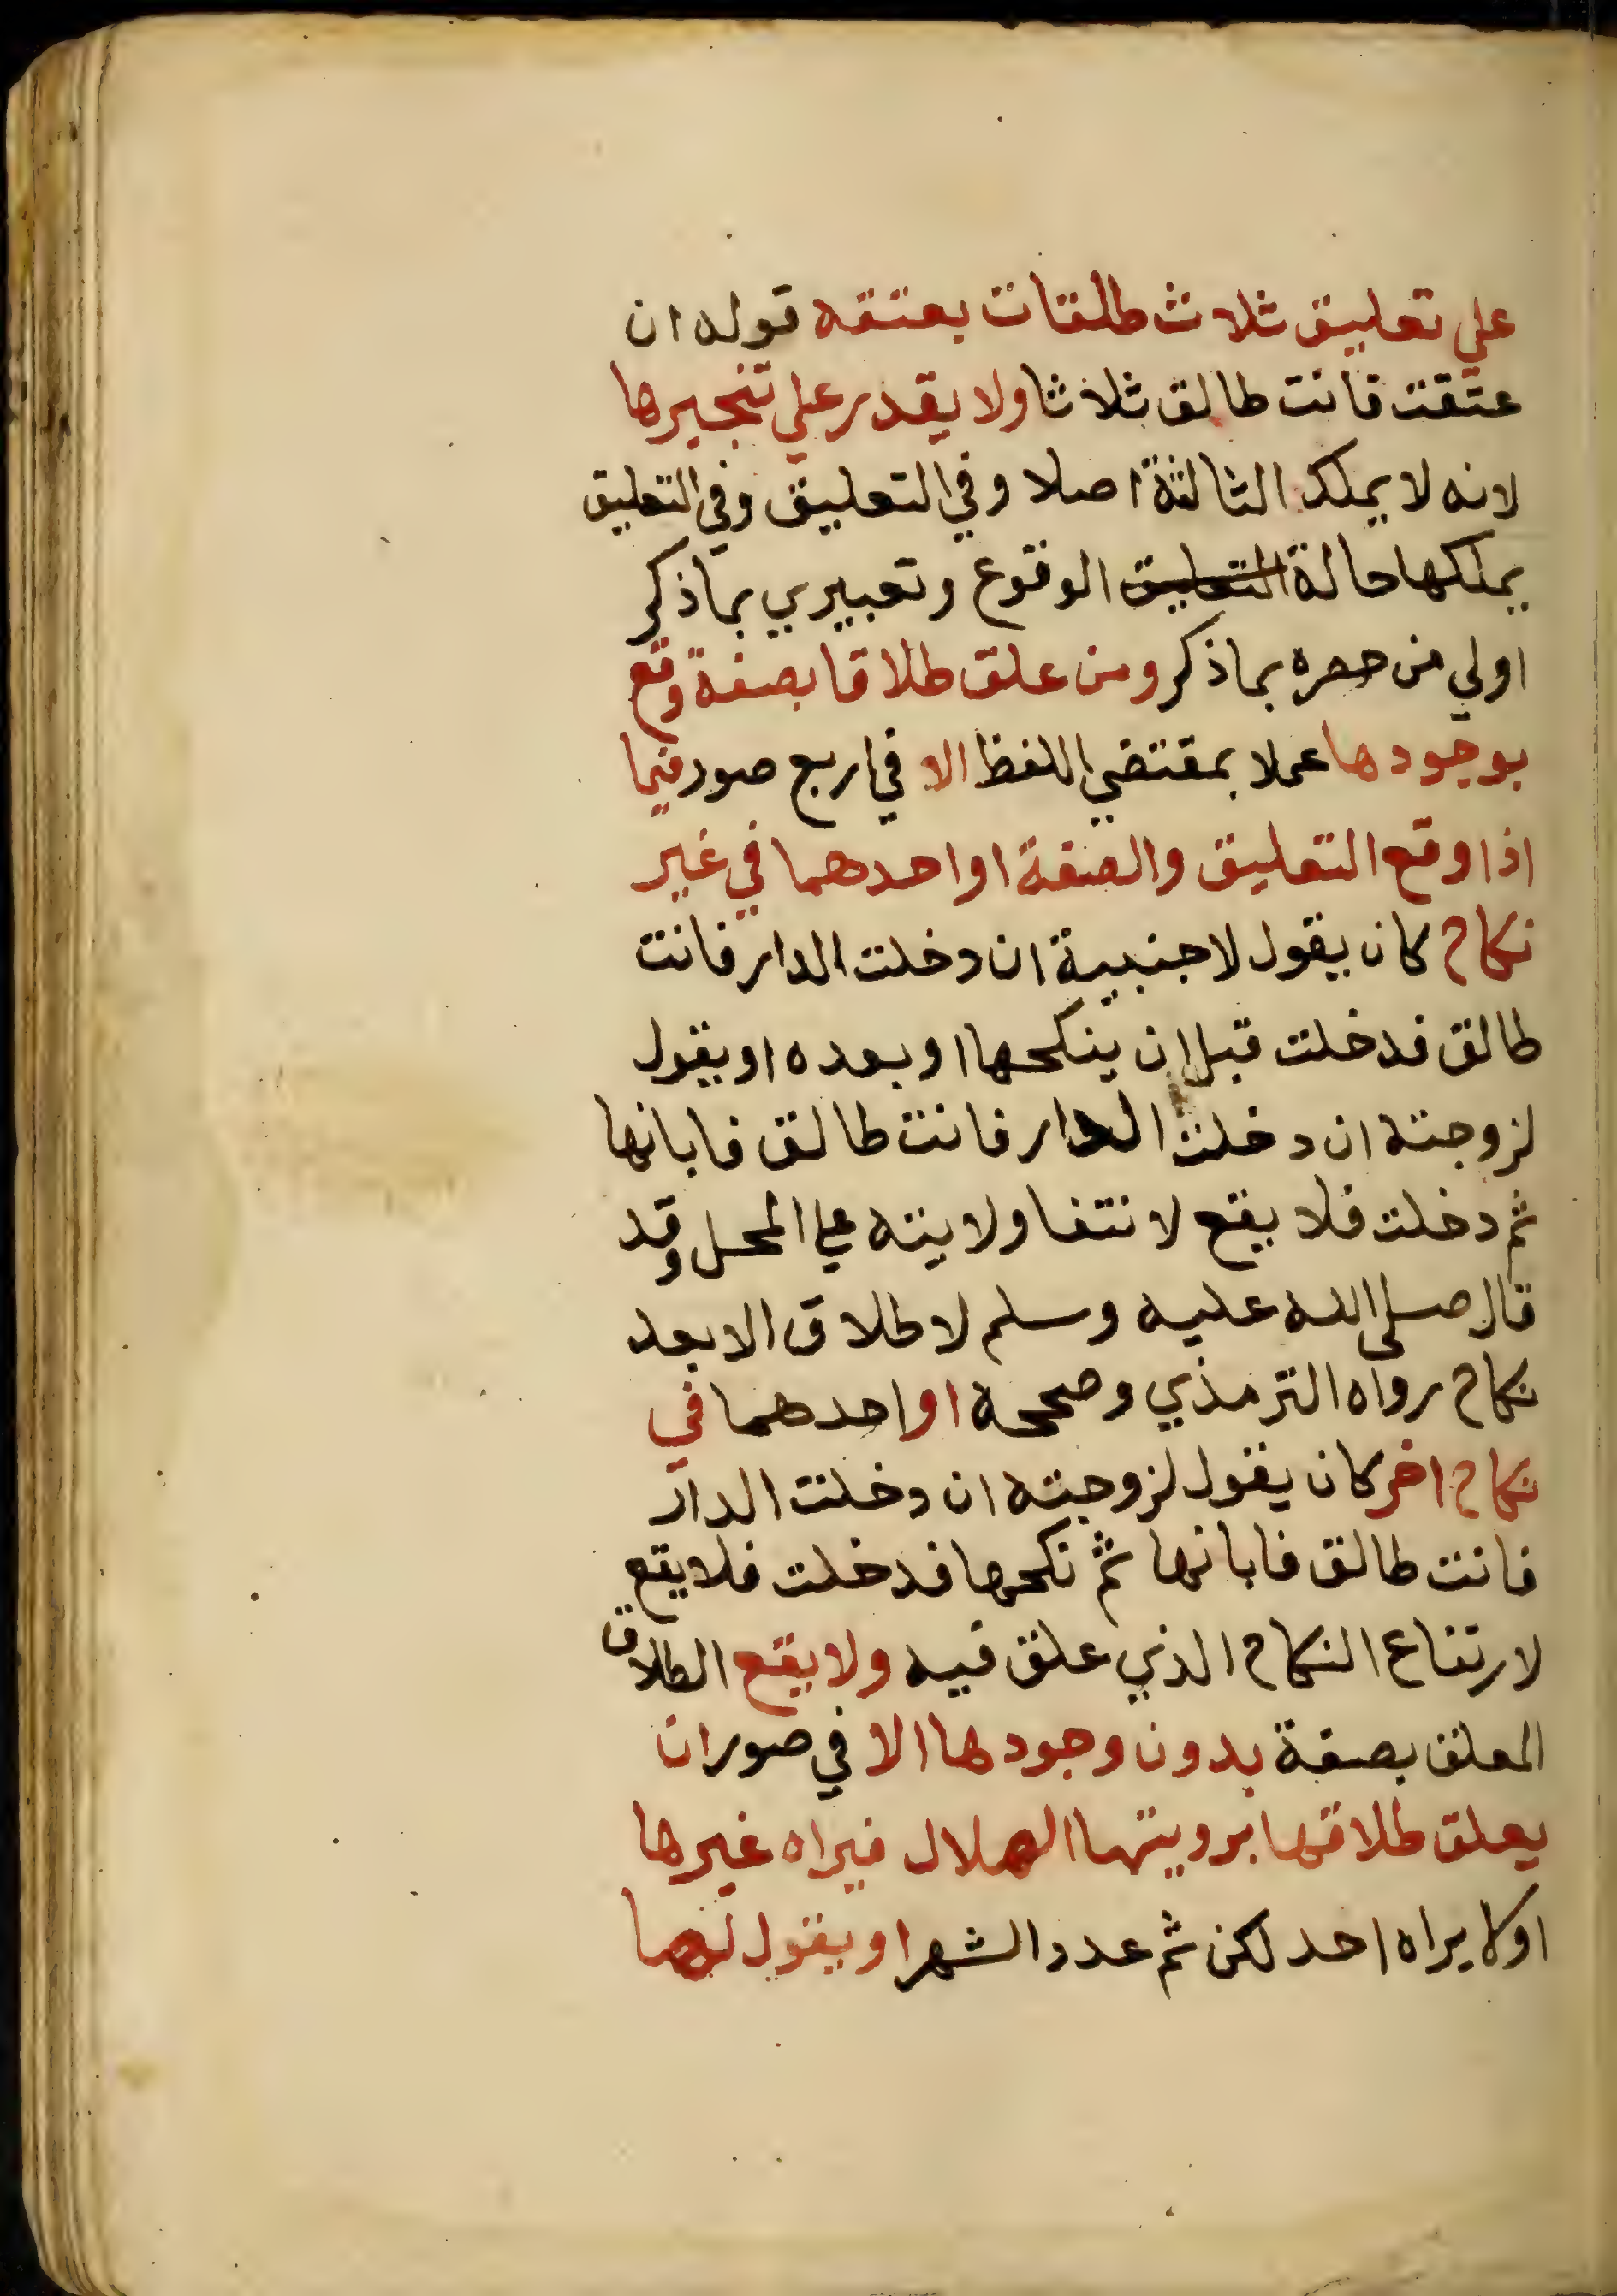 علي تعليق ثلاث طلقات بعتقه قوله ان
عتقت فانت طالق ثلاثا ولا يقدر علي تنجيرها
لانه لا يملك الثالثة اصلا وفي التعليق وفي التعليق
يملكها حالة التعليق الوقوع وتعبيري بماذكر
اولي من حصره بماذكر ومن علق طلاقا بصفة وقع
بوجودها عملا بمقتضي اللفظ الا في اربع صور فيما
اذا وقع التعليق والصفة او احدهما في غير
نكاح كان يقول لاجنبية ان دخلت الدار فانت
طالق فدخلت قبل ان ينكحها او بعده او يقول
لزوجته ان دخلت الدار فانت طالق فابانها
ثم دخلت فلا يقع لانتفا ولايته علي المحل وقد
قال صلى الله عليه وسلم لا طلاق الا بعد
نكاح رواه الترمذي وصححه او احدهما في
نكاح اخر كان يقول لزوجته ان دخلت الدار
فانت طالق فابانها ثم نكحها فدخلت فلا يقع
لارتفاع النكاح الذي علق فيه ولا يقع الطلاق
المعلق بصفة بدون وجودها الا في صور ان
يعلق طلاقها برويتها الهلال فيراه غيرها
اولا يراه احد لكن ثم عدد الشهر او يقول لها